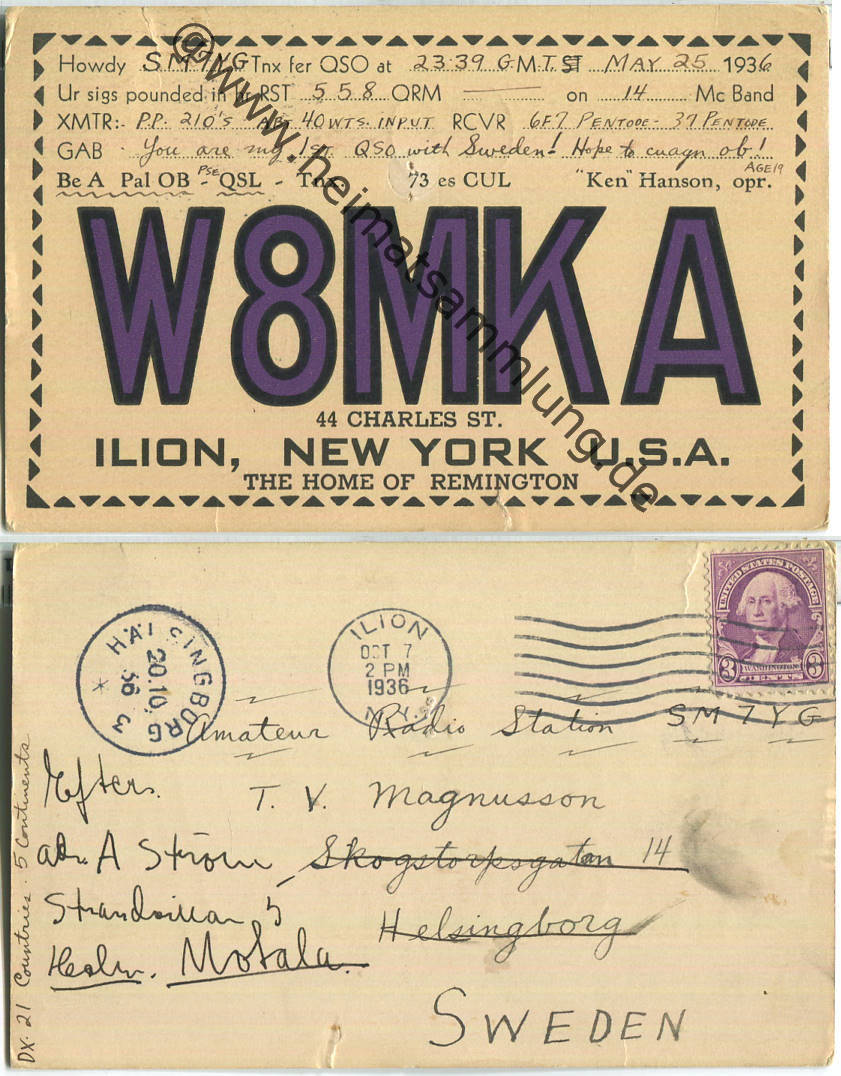 Howdy SM7YG Tnx fer QSO at 23:39 G.M.T. MAY 25 1936
Ur sigs pounded in hr RST 558 QRM ——— on 14 Mc Band
XMTR:- P.P. 210's 40 WTS. INPUT RCVR 6F7 PENTODE - 37 PENTODE
GAB You are my 1ST QSO with Sweden! Hope to cuagn ob!
Be A Pal OB - PSE QSL - Tnx 73 es CUL "Ken" Hanson, opr.
AGE 19
W8MKA
44 CHARLES ST.
ILION, NEW YORK U.S.A.
THE HOME OF REMINGTON
©www.heimatsammlung.de
UNITED STATES POSTAGE
3 WASHINGTON 3
CENTS
HÄLSINGBORG
20.10.
36
3
ILION
OCT 7
2 PM
1936
N.Y.
Amateur Radio Station SM7YG
T. V. Magnusson
Skogstorpsgatan 14
Helsingborg
SWEDEN
Efters.
adr. A Ström
5
Motala.
DX-21 Countries. 5 Continents